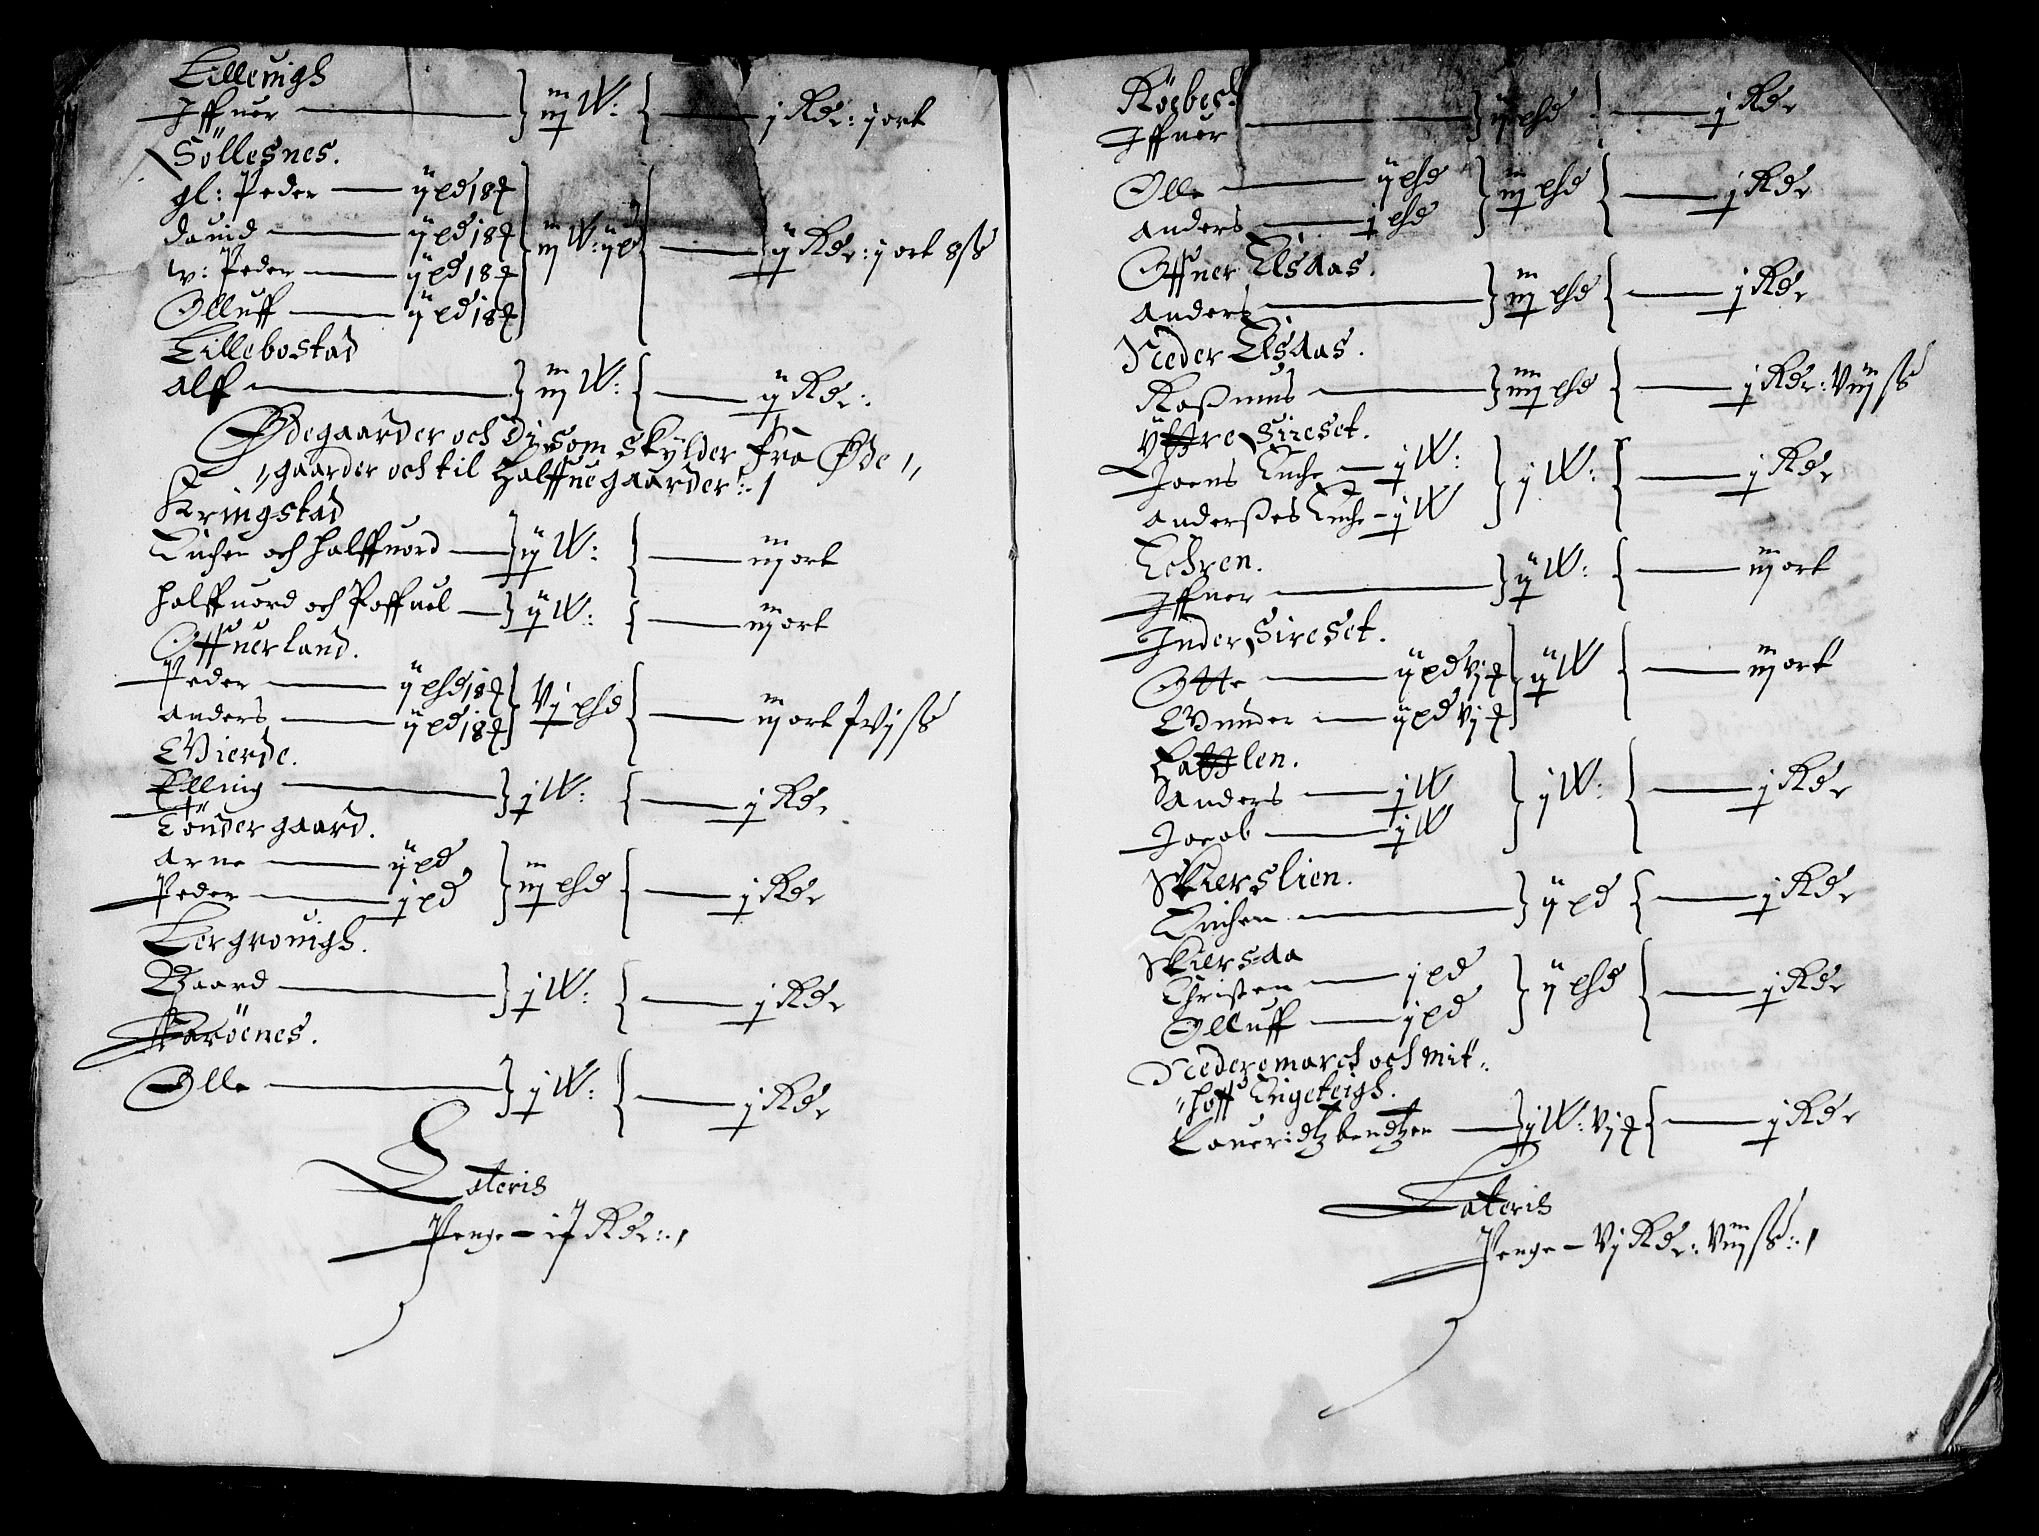 Lilleuigh
Iffuer } iij W: { j Rdr: j ort
Söllesnes.
gl: Peder ij pd 18
dauid ij pd 18
v: Peder ij pd 18
Olluff ij pd 18
} iij W: ij pd { ij Rdr: j ort 8 ß
Lillebostad
Alff } iij W: { ij Rdr:
Ødegaarder och Dj som skylder fra Øde
gaarder och til halffuegaarder:
Kringstad
Tuchen och halffuord } ij W: { iij ort
halffuord och Poffuel } ij W: { iij ort
Offuerland.
Peder ij phd 18
Anders ij pd 18
} Vj phd { iij ort XVj ß
Wierde.
Elling } j W: { j Rdr
Töndergaard.
Arne ij pd
Peder j pd
} iij phd { j Rdr
Lergrouigh.
Baard } j W: { j Rdr
Faröenes.
Olle } j W: { j Rdr
Lateris
Penge - iX Rdr:
Röebech
Iffuer } ij phd { j Rdr
Olle ij phd
Anders j phd
} iij phd { j Rdr
Offuer Elsaas.
Anders } iij phd { j Rdr
Neder Elsaas.
Rasmus } iiij phd { j Rdr: Viij ß
Yttre Sireset.
Joens Enche j W:
Anderses Enche j W
} j W: { j Rdr
Echren.
Iffuer } ij W: { iij ort
Inder Sireset.
Otte ij pd Vj
Gunder ij pd Vj
} ij W { iij ort
Hattlen.
Anders j W
Jacob j W
} j W: { j Rdr
Skierslien.
Tuchen } ij pd { j Rdr
Skiers-aa
Christen j pd
Olluff j pd
} ij phd { j Rdr
Nederemarch och mit:
hoff Engeteigh.
Laueridtz bendtzen } j W: Vj { j Rdr
Lateris
Penge - Vj Rdr: Viij ß: